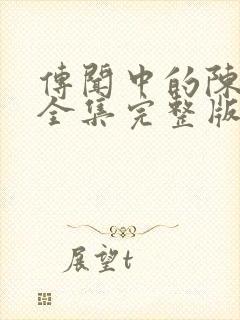 傳聞中的陳
全集完整版
展望t